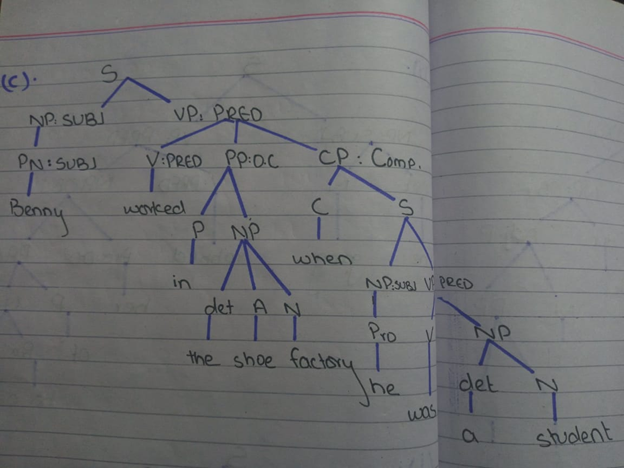 (C).
S
NP:SUBJ VP: PRED
PN:SUBJ V:PRED PP:O.C CP: Comp.
Benny worked P NP C S
in when NP:SUBJ VP PRED
det A N Pro V NP
the shoe factory he det N
was a student